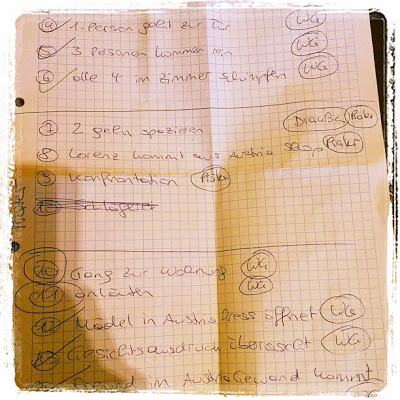 ④ 1. Person geht zur Tür WG
⑤ 3 Personen kommen rein WG
⑥ alle 4 im Zimmer schimpfen WG
⑦ 2 gehen spazieren Draußen
⑧ Lorenz kommt aus Austria Shop
⑨ Konfrontation
10 Schlägerei
⑩ Gang zur Wohnung WG
⑪ anläuten WG
12 Model in Austria Dress öffnet WG
13 Gesichtsausdruck überrascht WG
Freund in Austria Gewand kommt